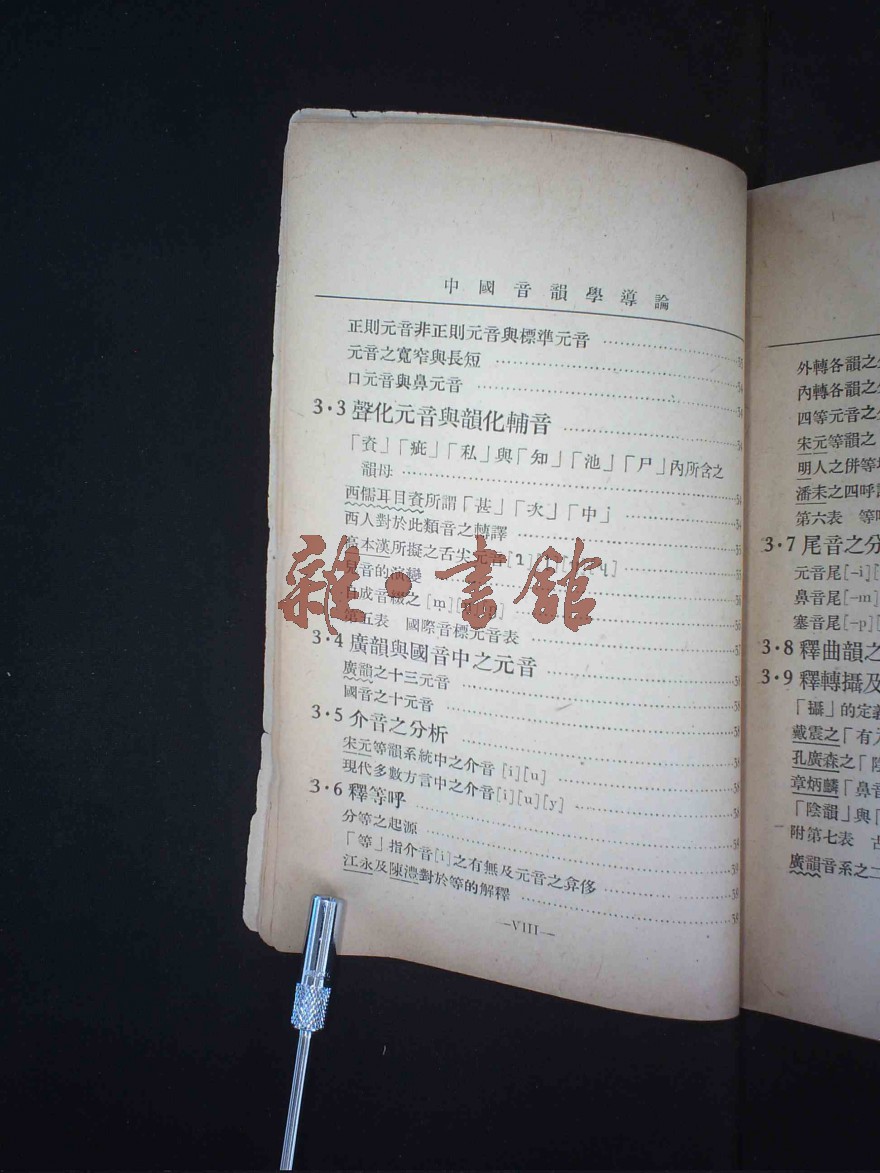 中國音韻學導論
正則元音非正則元音與標準元音
元音之寬窄與長短
口元音與鼻元音
3·3 聲化元音與韻化輔音
「資」「疵」「私」與「知」「池」「尸」內所含之
韻母
西儒耳目資所謂「甚」「次」「中」
西人對於此類音之轉譯
高本漢所擬之舌尖元音
兒音的演變
自成音綴之
第五表 國際音標元音表
3·4 廣韻與國音中之元音
廣韻之十三元音
國音之十元音
3·5 介音之分析
宋元等韻系統中之介音 [i][u]
現代多數方言中之介音[i][u][y]
3·6 釋等呼
分等之起源
「等」指介音[i]之有無及元音之弇侈
江永及陳澧對於等的解釋
—VIII—
外轉各韻之
內轉各韻之
四等元音之
宋元等韻之
明人之併等
潘耒之四呼
第六表 等
3·7 尾音之分
元音尾[-i]
鼻音尾[-m]
塞音尾[-p]
3·8 釋曲韻之
3·9 釋轉攝及
「攝」的定義
戴震之「有入
孔廣森之「陰
章炳麟「鼻音
「陰韻」與「
附第七表 古
廣韻音系之二
雜·書館